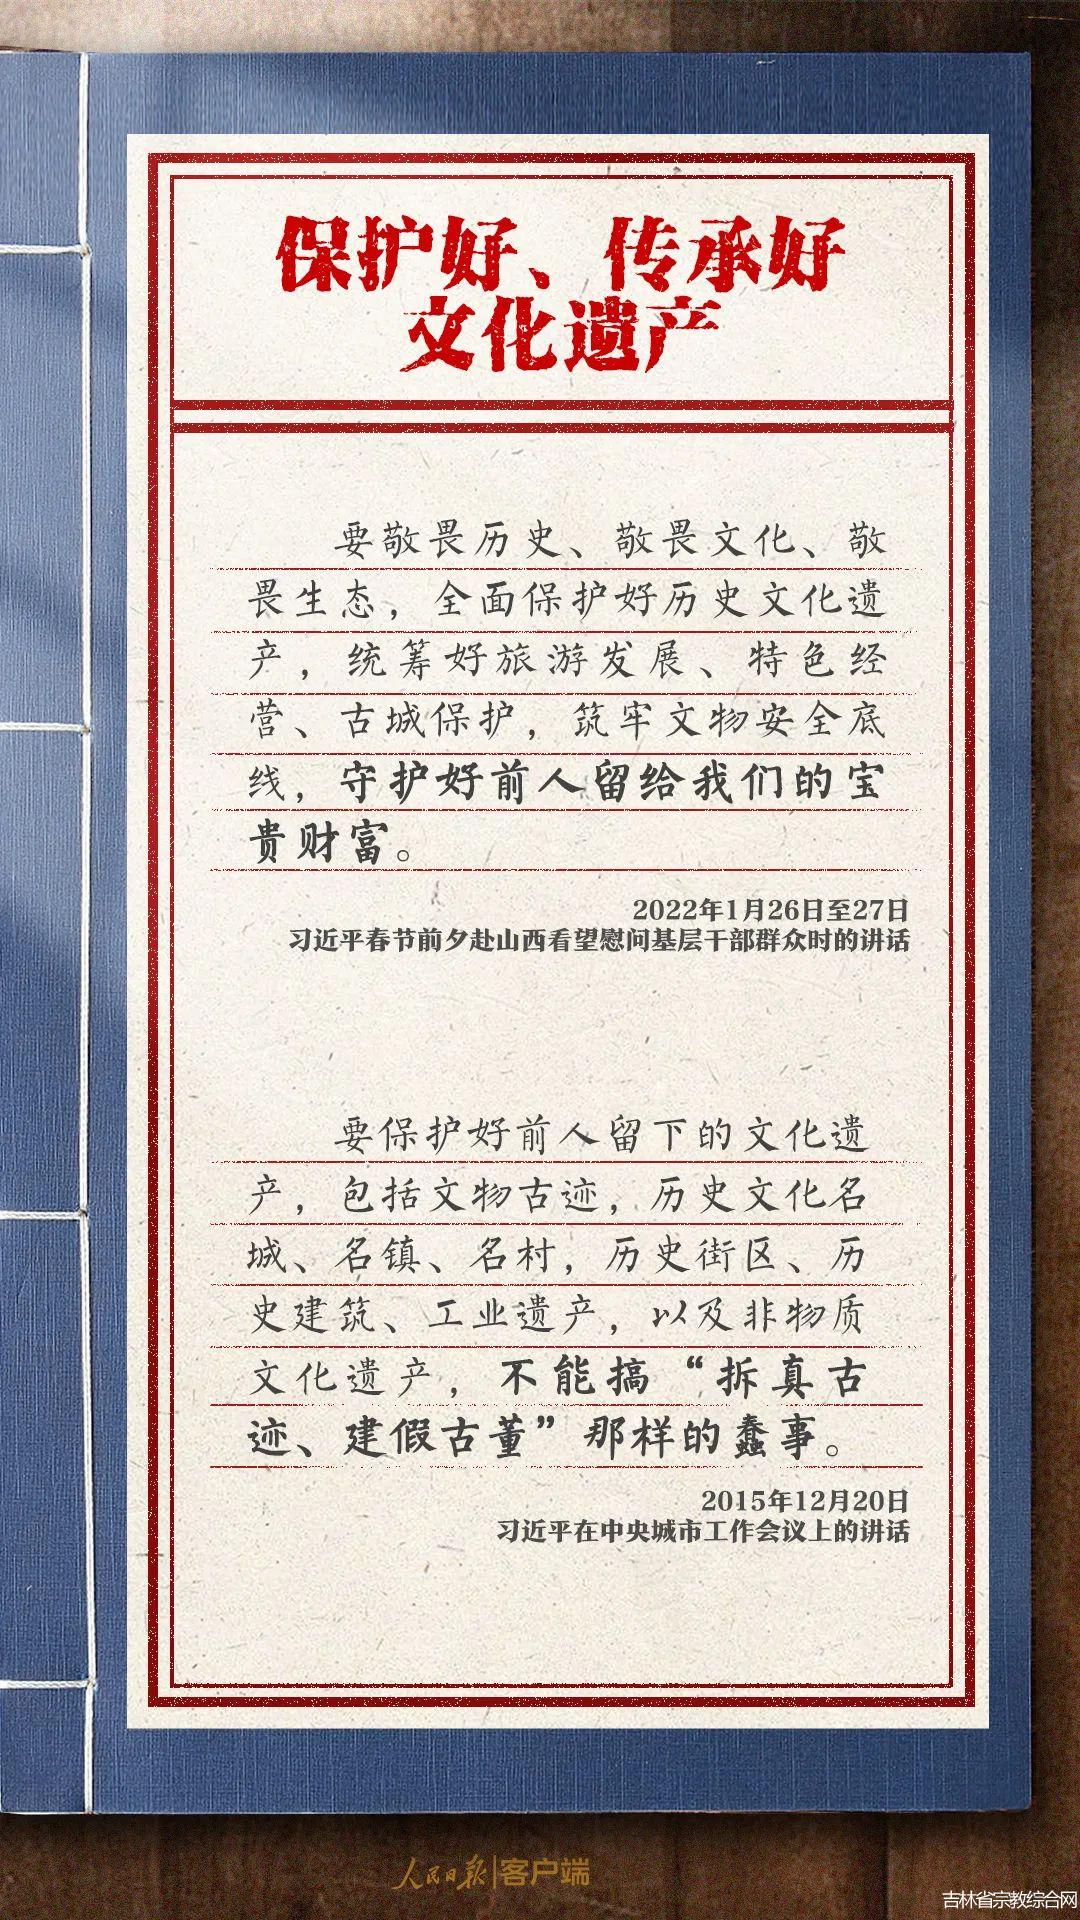 保护好、传承好
文化遗产
要敬畏历史、敬畏文化、敬
畏生态，全面保护好历史文化遗
产，统筹好旅游发展、特色经
营、古城保护，筑牢文物安全底
线，守护好前人留给我们的宝
贵财富。
2022年1月26日至27日
习近平春节前夕赴山西看望慰问基层干部群众时的讲话
要保护好前人留下的文化遗
产，包括文物古迹，历史文化名
城、名镇、名村，历史街区、历
史建筑、工业遗产，以及非物质
文化遗产，不能搞“拆真古
迹、建假古董”那样的蠢事。
2015年12月20日
习近平在中央城市工作会议上的讲话
人民日报|客户端
吉林省宗教综合网